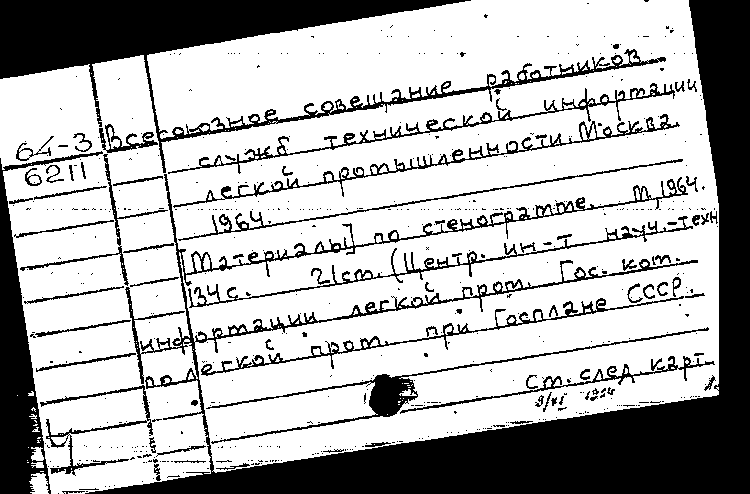 Всесоюзное совещание работников
64-3
6211
служб технической информации
легкой промышленности. Москва.
1964.
[Материалы] по стенограмме. М, 1964.
134 с. 21 см. (Центр. ин-т науч.-техн
информации легкой пром. Гос. ком.
по легкой пром. при Госплане СССР.
См. след. карт.